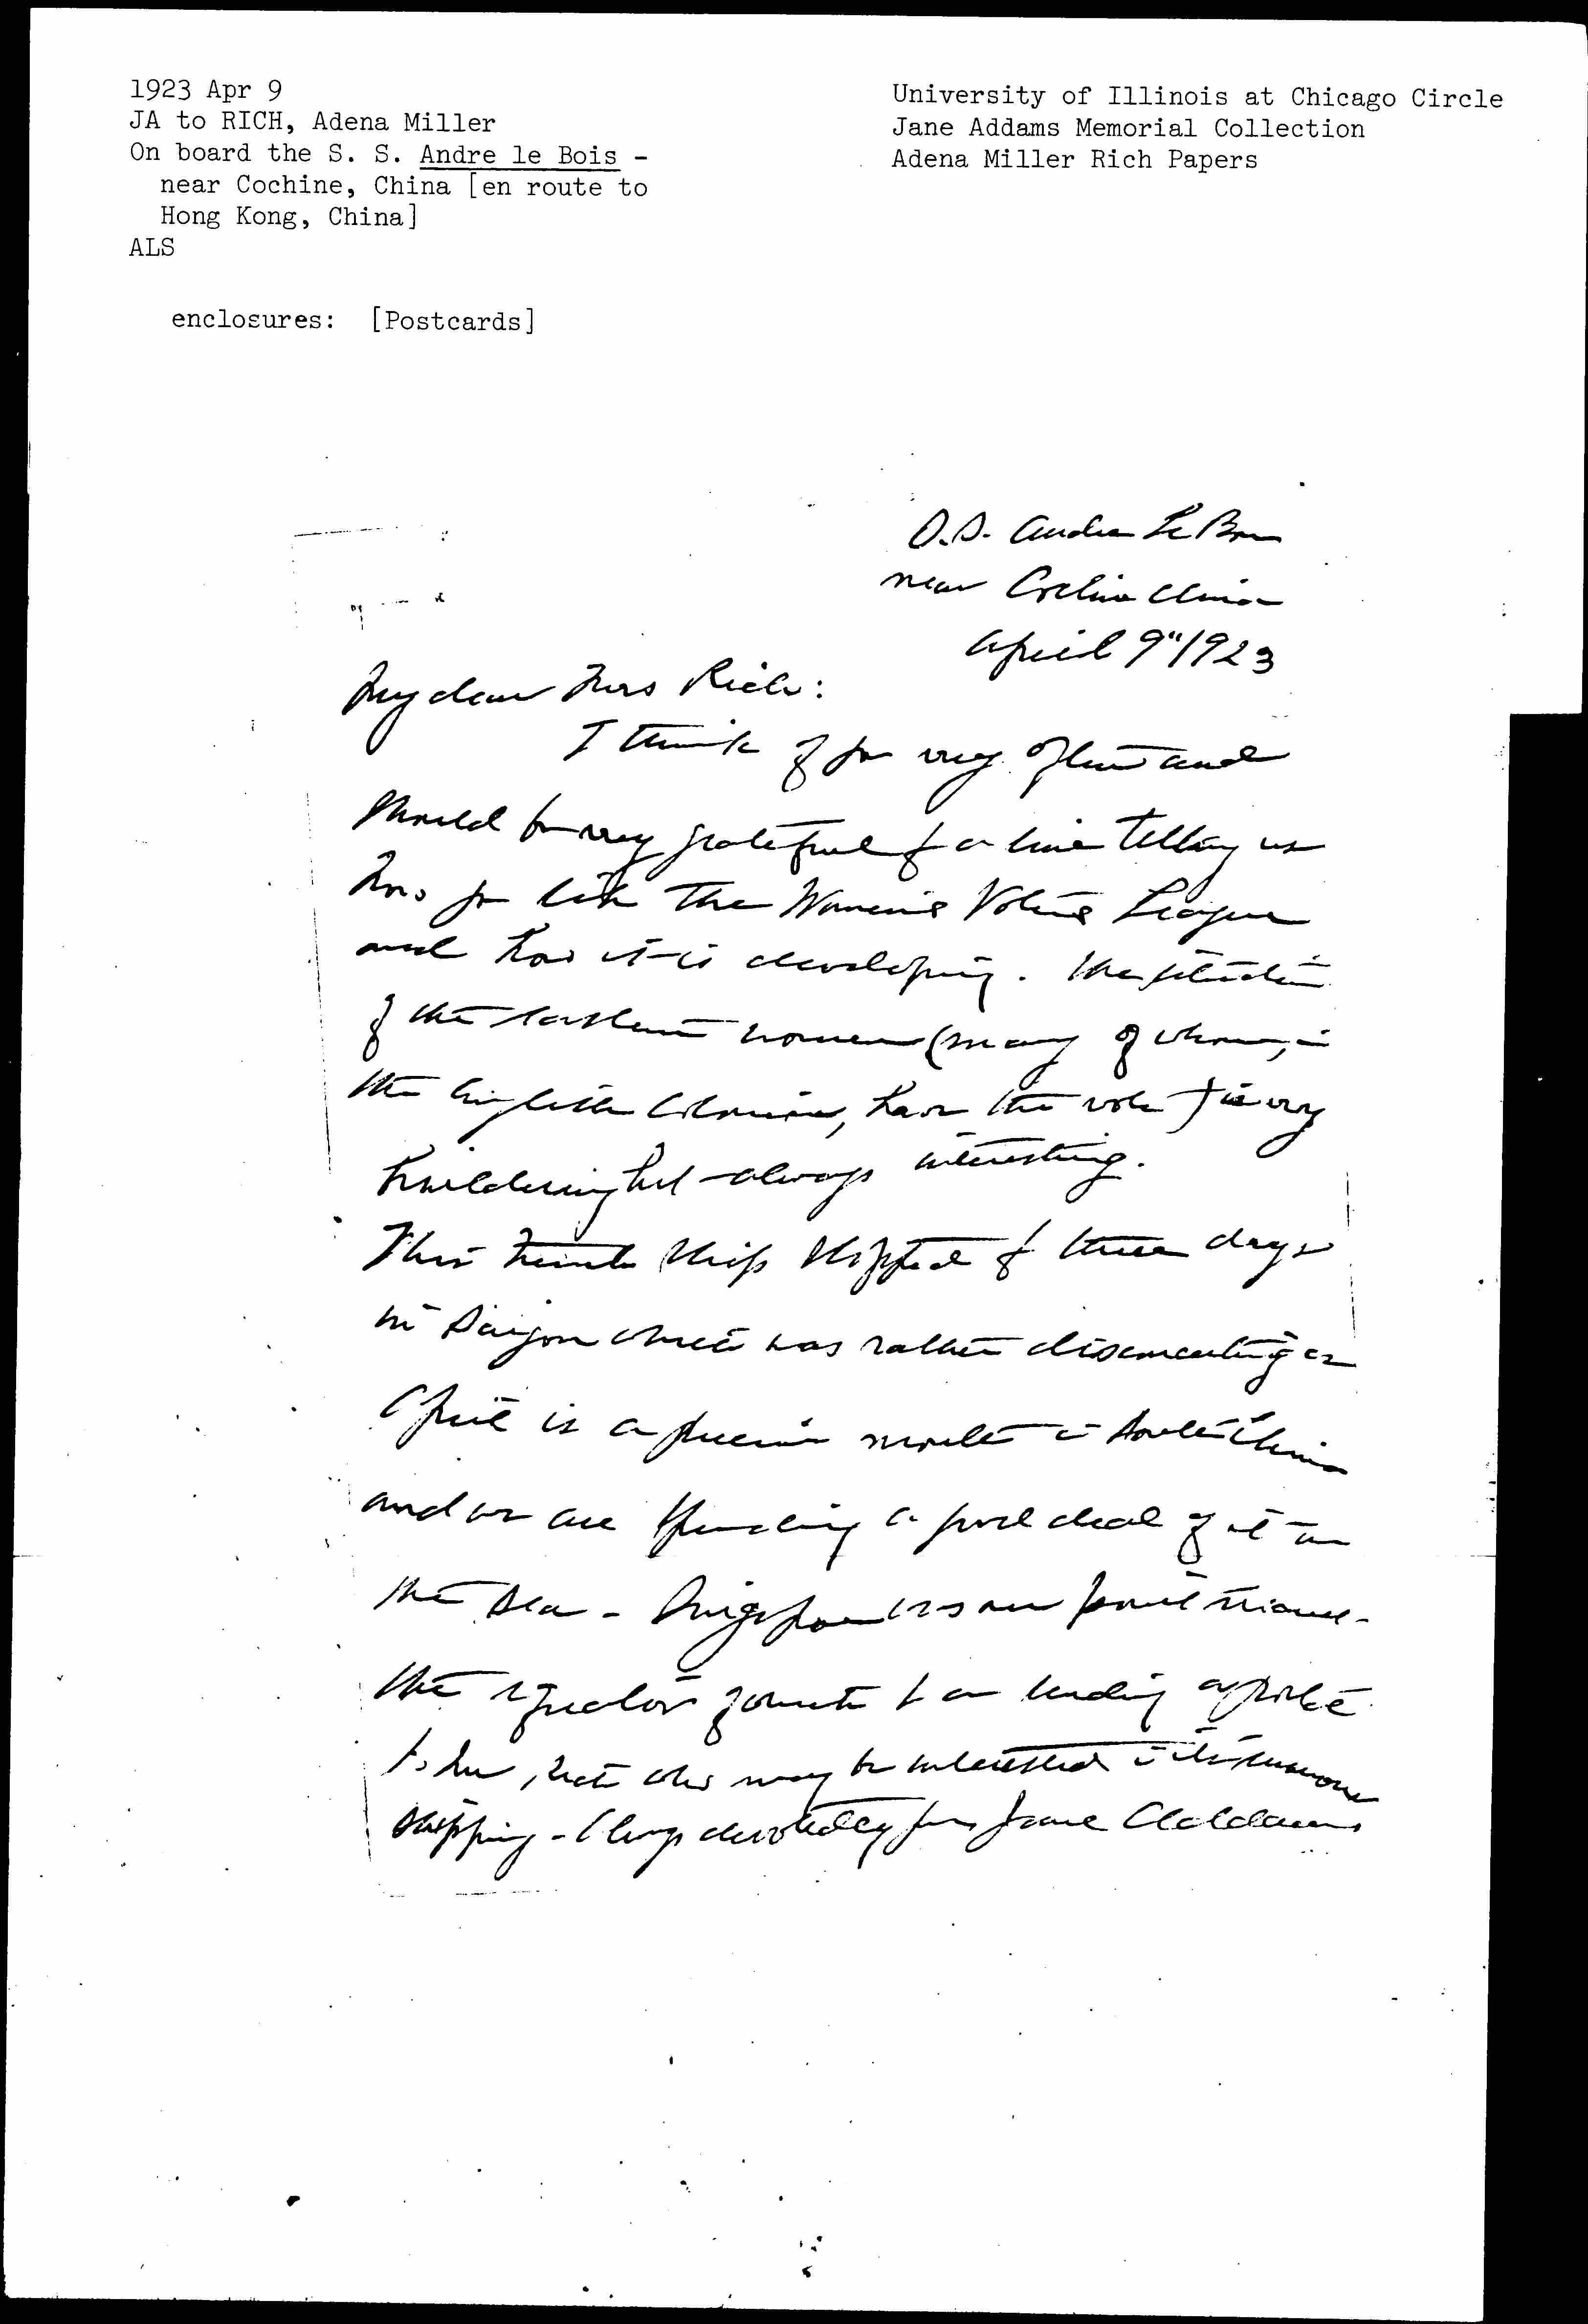 1923 Apr 9
JA to RICH, Adena Miller
On board the S. S. Andre le Bois -
near Cochine, China [en route to
Hong Kong, China]
ALS
enclosures: [Postcards]
University of Illinois at Chicago Circle
Jane Addams Memorial Collection
Adena Miller Rich Papers
S.S. Andre Le Bon
near Cochine China
April 9"/1923
My dear Mrs Rich:
I think of you very often and
should be very grateful for a line telling us
how you like the Women's Voting League
and how it is developing. The situation
of the eastern women (many of whom, in
the English Colonies, have the vote) is very
bewildering but always interesting.
This French ship stopped for three days
in Saigon which was rather disconcerting as
April is a precious month in South China
and we are spending a good deal of it on
the sea - Singapore was our point
the equator I am sending a
to her, who may be interested in its
shipping - Always devotedly yours Jane Addams